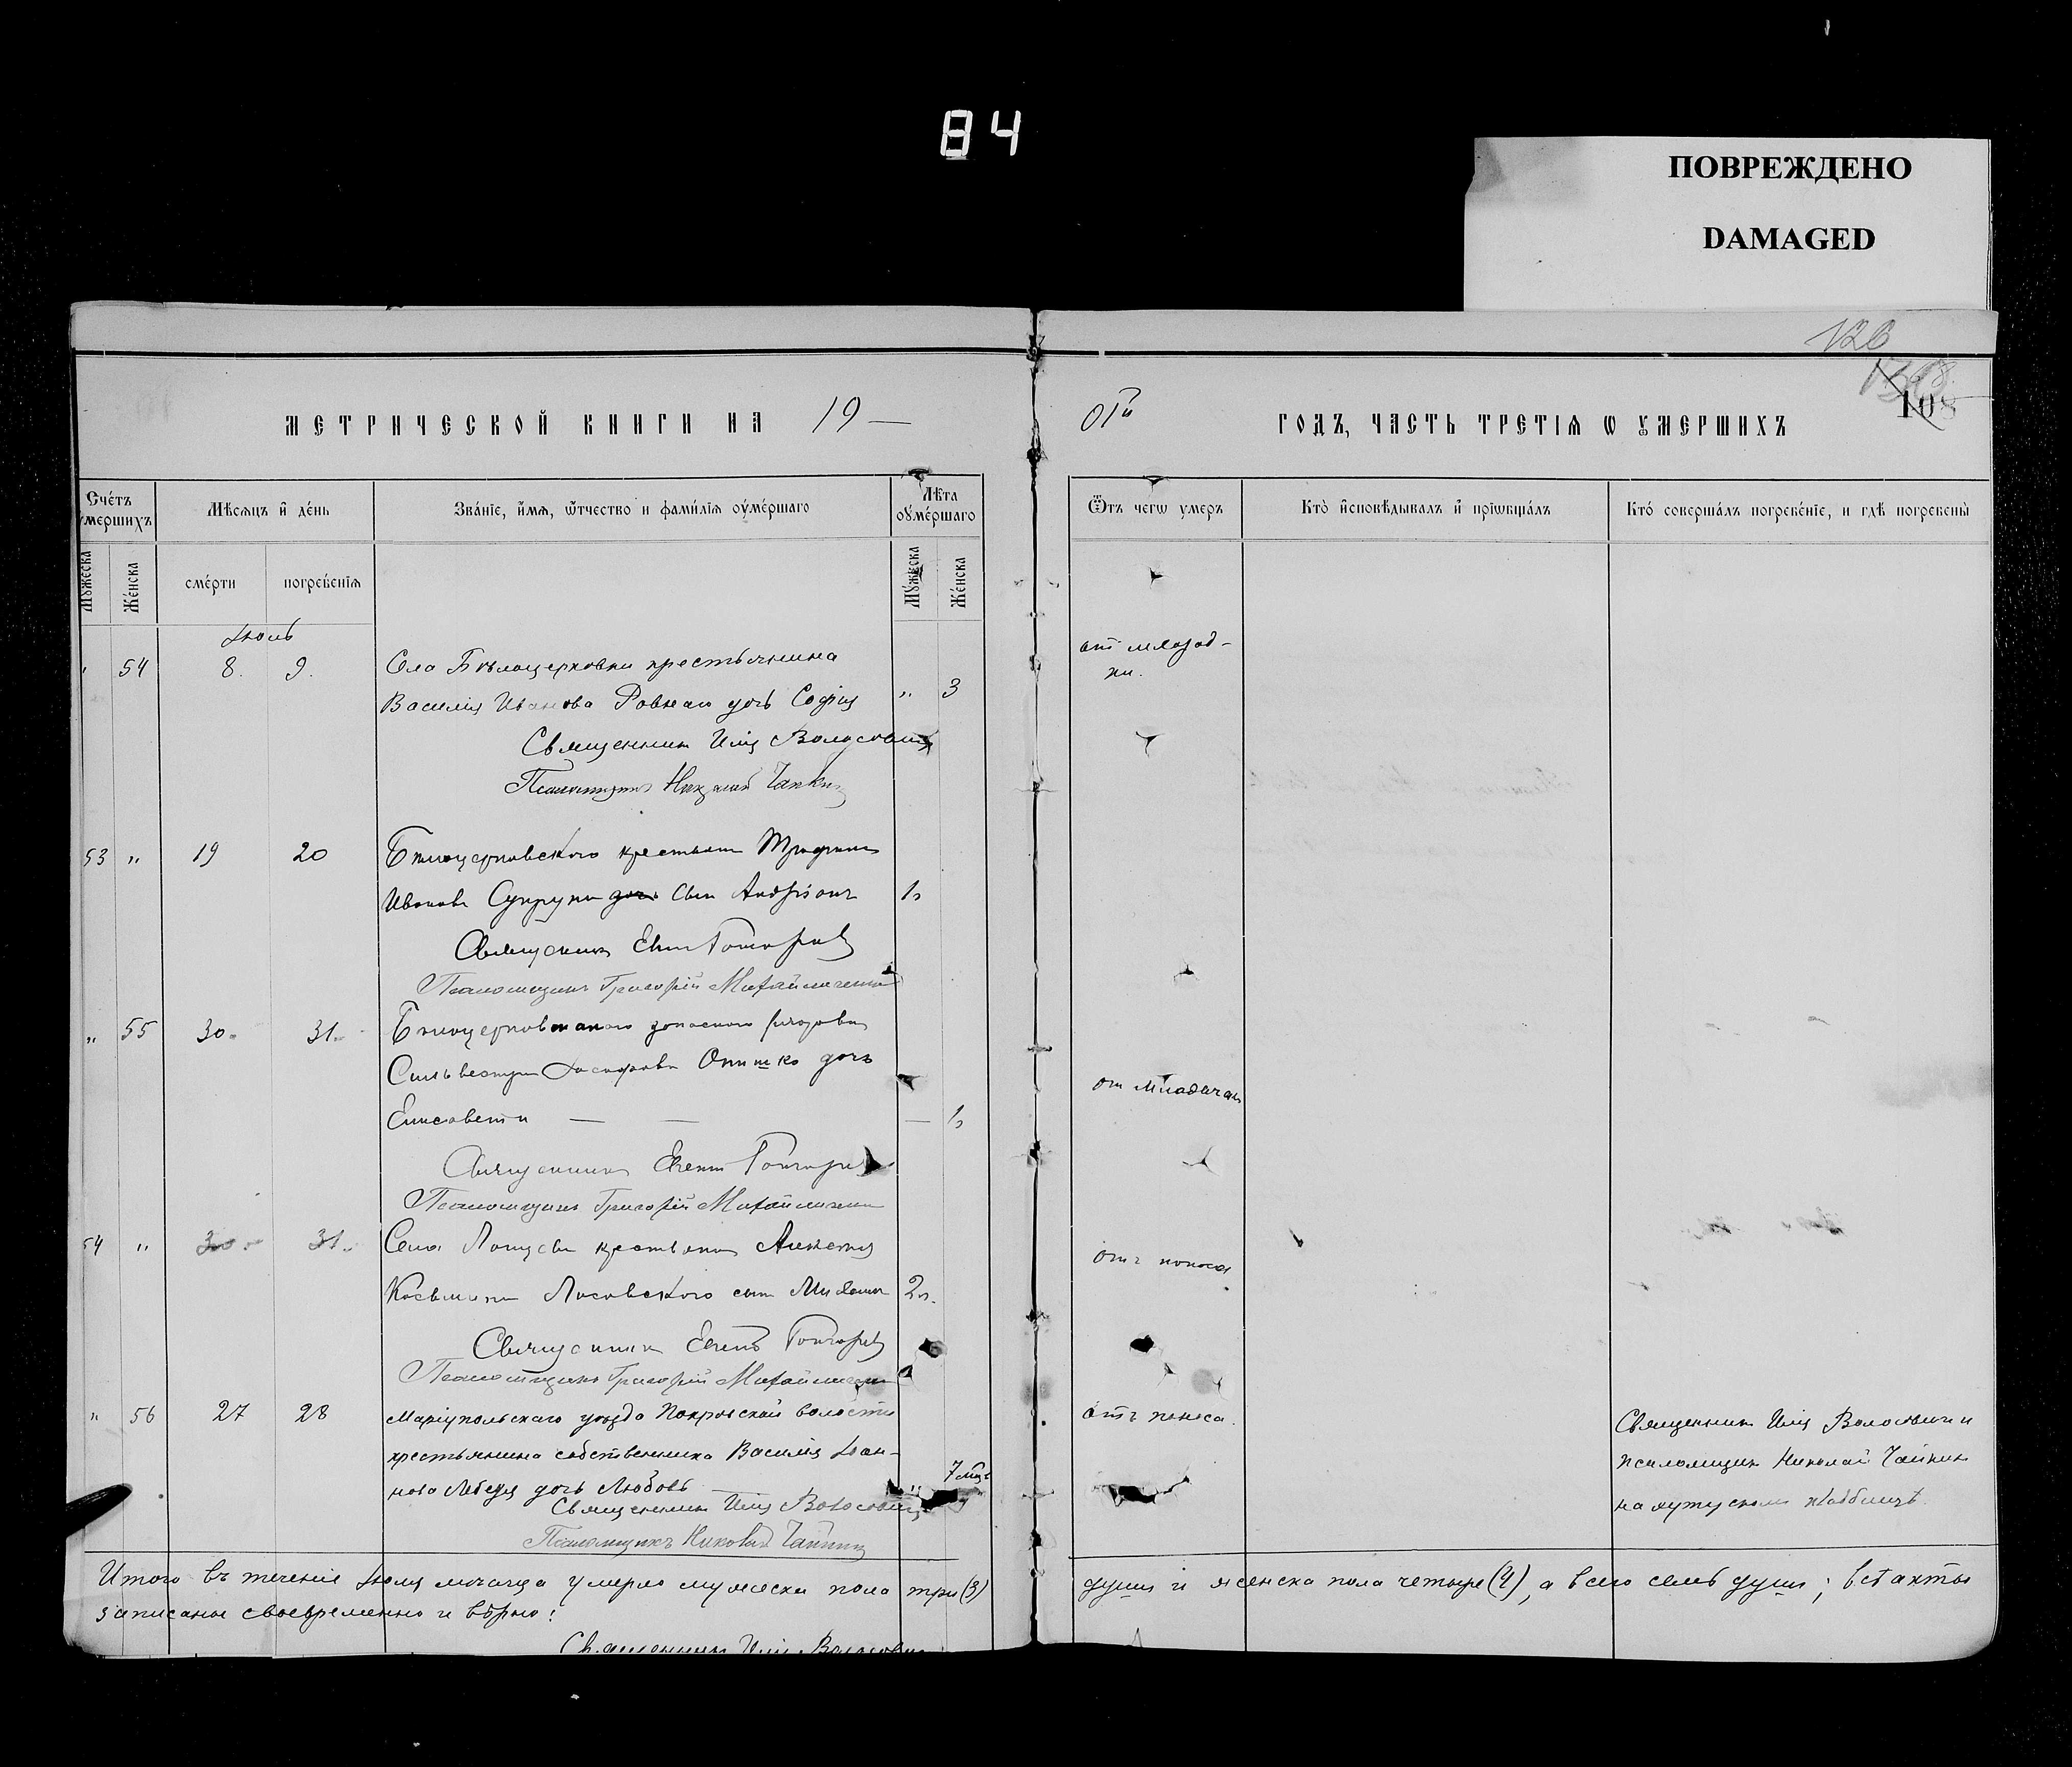 84
ПОВРЕЖДЕНО
DAMAGED
126
108
МЕТРИЧЕСКОЙ КНИГИ НА 19 —
01й ГОДЪ, ЧАСТЬ ТРЕТІѦ Ѡ УМЕРШИХЪ
Счетъ умершихъ
Мѣсяцъ и день
Званіе, имя, отчество и фамилія умершаго
Лѣта умершаго
Ѿтъ чегѡ умеръ
Кто исповѣдывалъ и пріѡбщалъ
Кто совершалъ погребеніе, и гдѣ погребены
Мужеска
Женска
смерти
погребенія
Мужеска
Женска
Іюль
54 8. 9. Села Бѣлоцерковки крестьянина
Василія Иванова Ровнаго дочь Софія „ 3
Священникъ Илія Волосовичъ
Псаломщикъ Николай Чайкинъ
53 „ 19 20 Бѣлоцерковского крестьян. Трофима
Иванова Супруна дочь сын Андріанъ 1
Священникъ
Псаломщикъ Григорій Михайличенко
„ 55 30 31 Бѣлоцерковского запасного рядового
Сильвестра Опишко дочь
Елисавета — — — 1
от младенч.
Священникъ
Псаломщикъ Григорій Михайличенко
54 „ 30 31 Села крестьянина Алексѣя
Косьмина Лосовского сын Михаилъ 2
отъ поноса
Священникъ
Псаломщикъ Григорій Михайличенко
„ 56 27 28 Маріупольскаго уѣзда Покровской волости
крестьянина собственника Василія Іоан-
нова Лебедя дочь Любовь 7 мѣс.
отъ поноса.
Священникъ Илія Волосовичъ
Псаломщикъ Николай Чайкинъ
Священникъ Илія Волосовичъ и
псаломщикъ Николай Чайкинъ
на хуторскомъ кладбищѣ.
Итого въ теченіе Іюля мѣсяца умерло мужеска пола три (3) души и женска пола четыре (4), а всего семь душъ; всѣ акты
записаны своевременно и вѣрно:
Священникъ Илія Волосовичъ